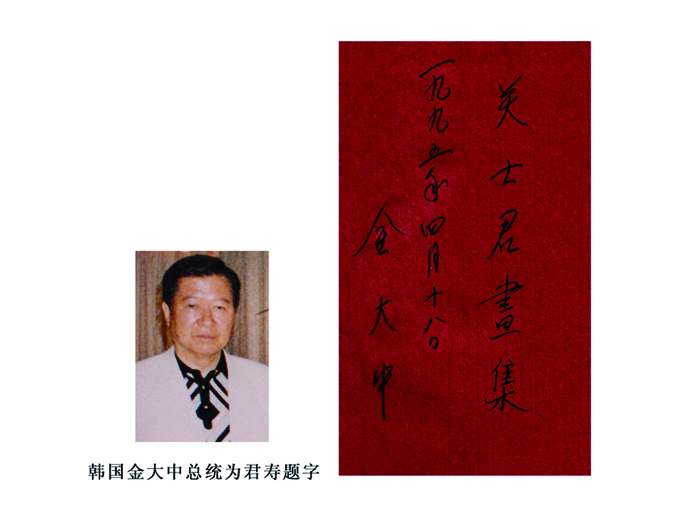 关士君畫集
一九九五年四月十八日
金大中
韩国金大中总统为君寿题字